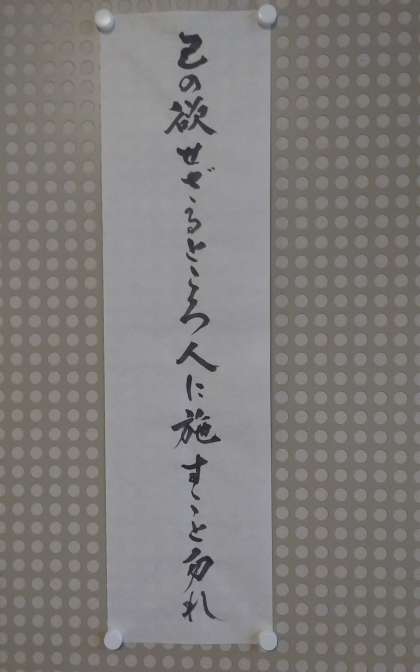 己の欲せざるところ人に施すこと勿れ